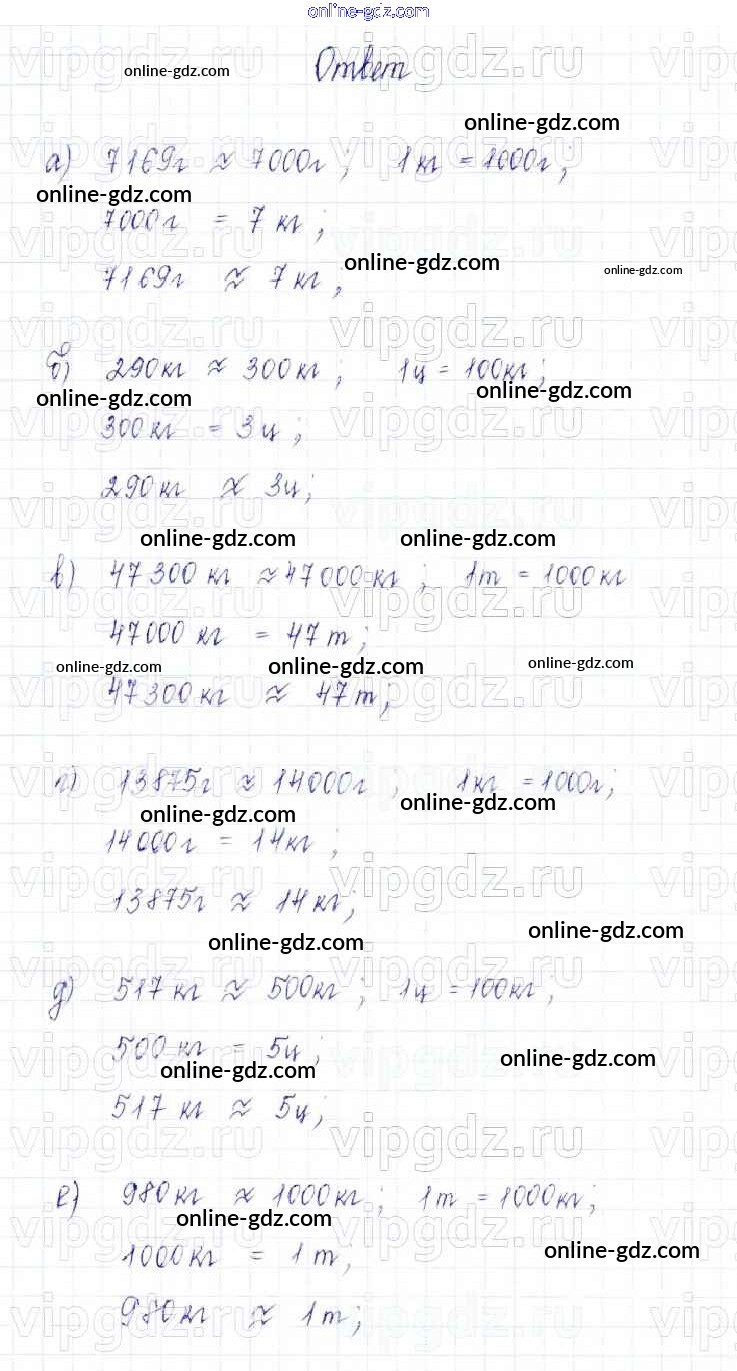 online-gdz.com
Ответ
online-gdz.com
online-gdz.com
а) 7169г ≈ 7000г; 1кг = 1000г;
online-gdz.com
7000г = 7 кг;
online-gdz.com
online-gdz.com
7169г ≈ 7кг;
vipgdz.ru vipgdz.ru
б) 290кг ≈ 300кг; 1ц = 100кг;
online-gdz.com
online-gdz.com
300кг = 3ц;
290кг ≈ 3ц;
online-gdz.com online-gdz.com
в) 47300 кг ≈ 47000 кг; 1т = 1000кг
47000 кг = 47т;
online-gdz.com online-gdz.com online-gdz.com
47300кг ≈ 47т;
г) 13875г ≈ 14000г; 1кг = 1000г;
online-gdz.com online-gdz.com
14000г = 14кг;
13875г ≈ 14кг;
online-gdz.com online-gdz.com
д) 517кг ≈ 500кг; 1ц = 100кг;
500кг = 5ц;
online-gdz.com online-gdz.com
517 кг ≈ 5ц;
е) 980кг ≈ 1000кг; 1т = 1000кг;
online-gdz.com
online-gdz.com
1000кг = 1т;
980кг ≈ 1т;